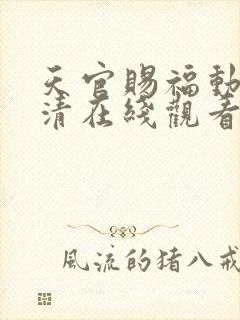 天官賜福動
清在綫觀看
風流的猪八戒